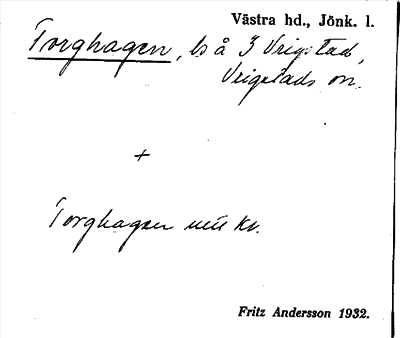 Västra hd., Jönk. l.
Torghagen, ls å 3 Vrigstad,
Vrigstads sn.
+
Torghagen kv.
Fritz Andersson 1932.